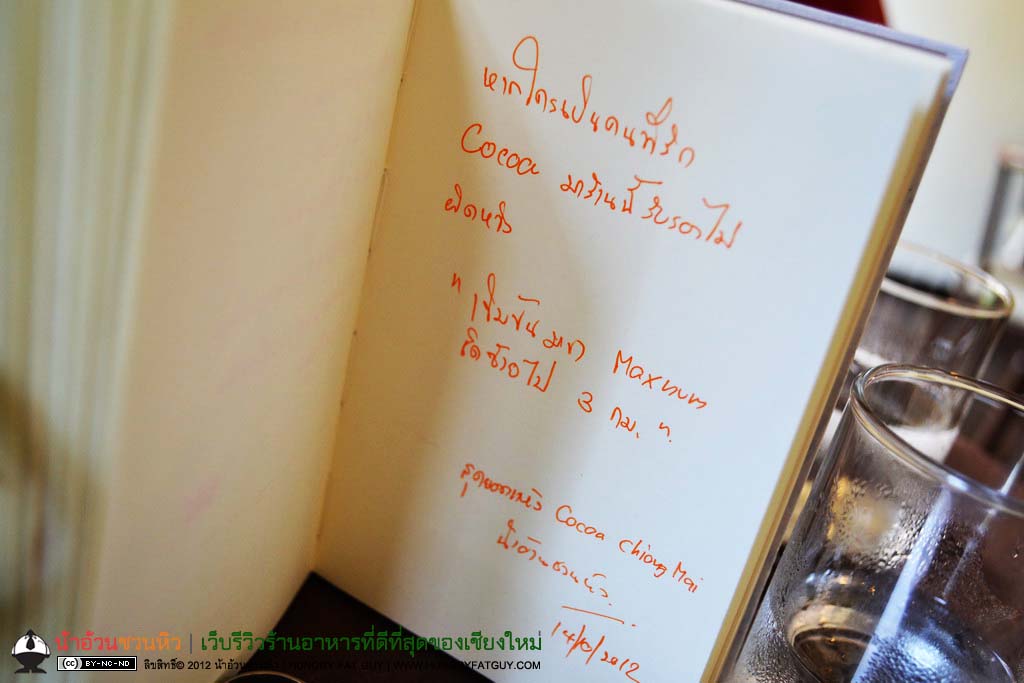 หากใครเป็นคนที่รัก
Cocoa มาร้านนี้ รับรองไม่
ผิดหวัง
" เข้มข้น มาก Maxnum
ติดซ้ายไป 3 กม. "
สุดยอดแห่ง Cocoa Chiang Mai
น้าอ้วนชวนหิว.
2012
น้าอ้วนชวนหิว | เว็บรีวิวร้านอาหารที่ดีที่สุดของเชียงใหม่
(cc) BY-NC-ND ลิขสิทธิ์© 2012 น้าอ้วนชวนหิว | HUNGRY FAT GUY | WWW.HUNGRYFATGUY.COM